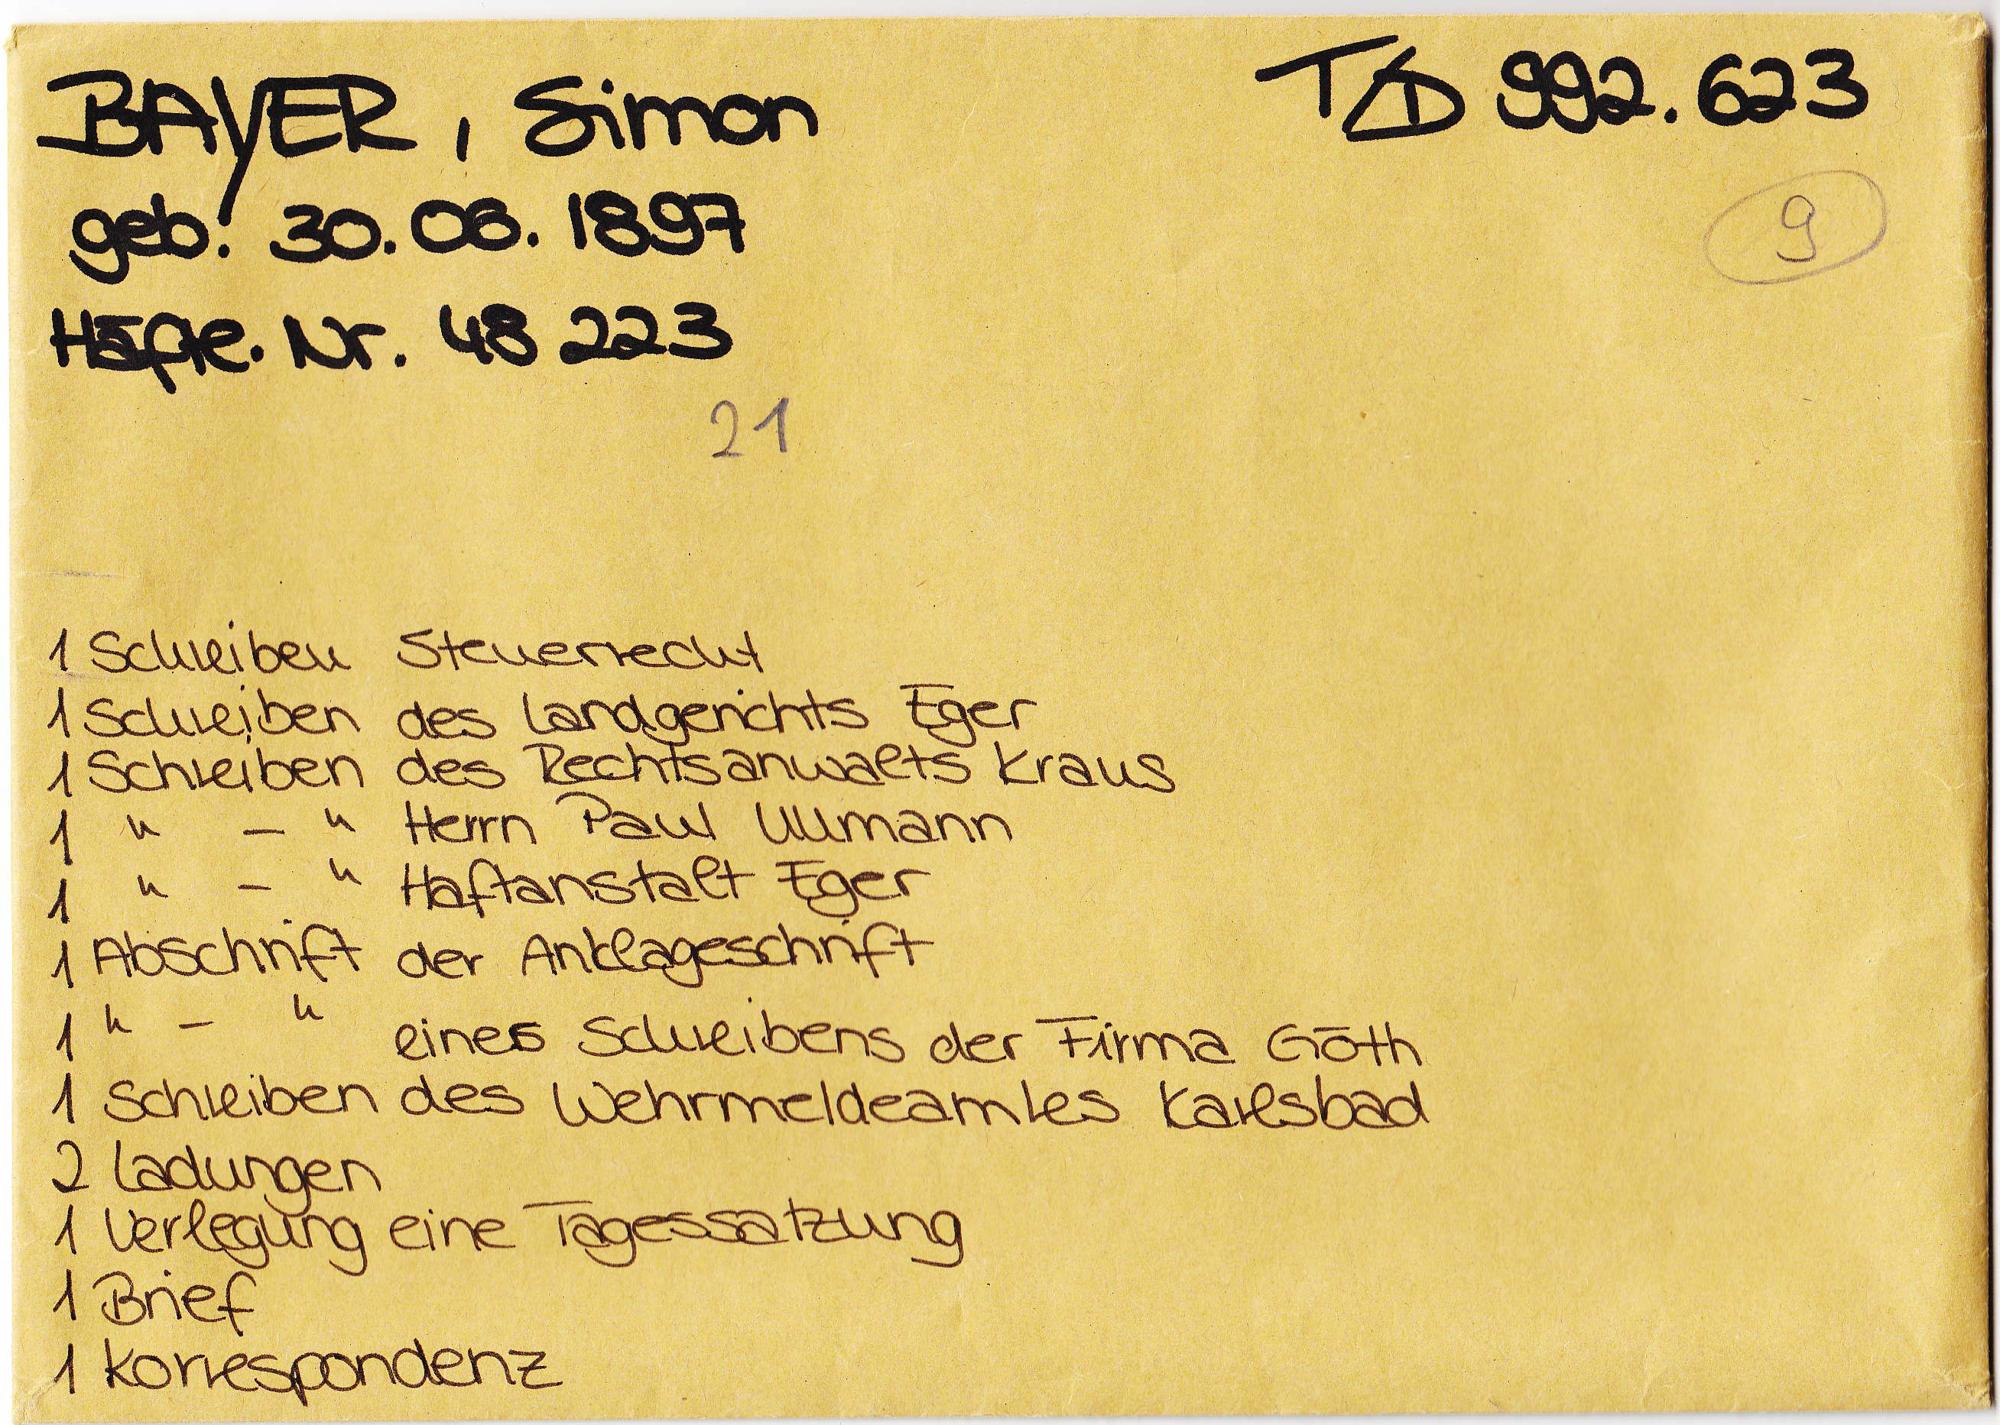 BAYER, Simon
T/D 992.623
geb. 30.06.1897
9
Häftl. Nr. 48 223
21
1 Schreiben Steuerrecht
1 Schreiben des Landgerichts Eger
1 Schreiben des Rechtsanwalts Kraus
1 " – " Herrn Paul Ullmann
1 " – " Haftanstalt Eger
1 Abschrift der Anklageschrift
1 " – " eines Schreibens der Firma Göth
1 Schreiben des Wehrmeldeamtes Karlsbad
2 Ladungen
1 Verlegung eine Tagessatzung
1 Brief
1 Korrespondenz